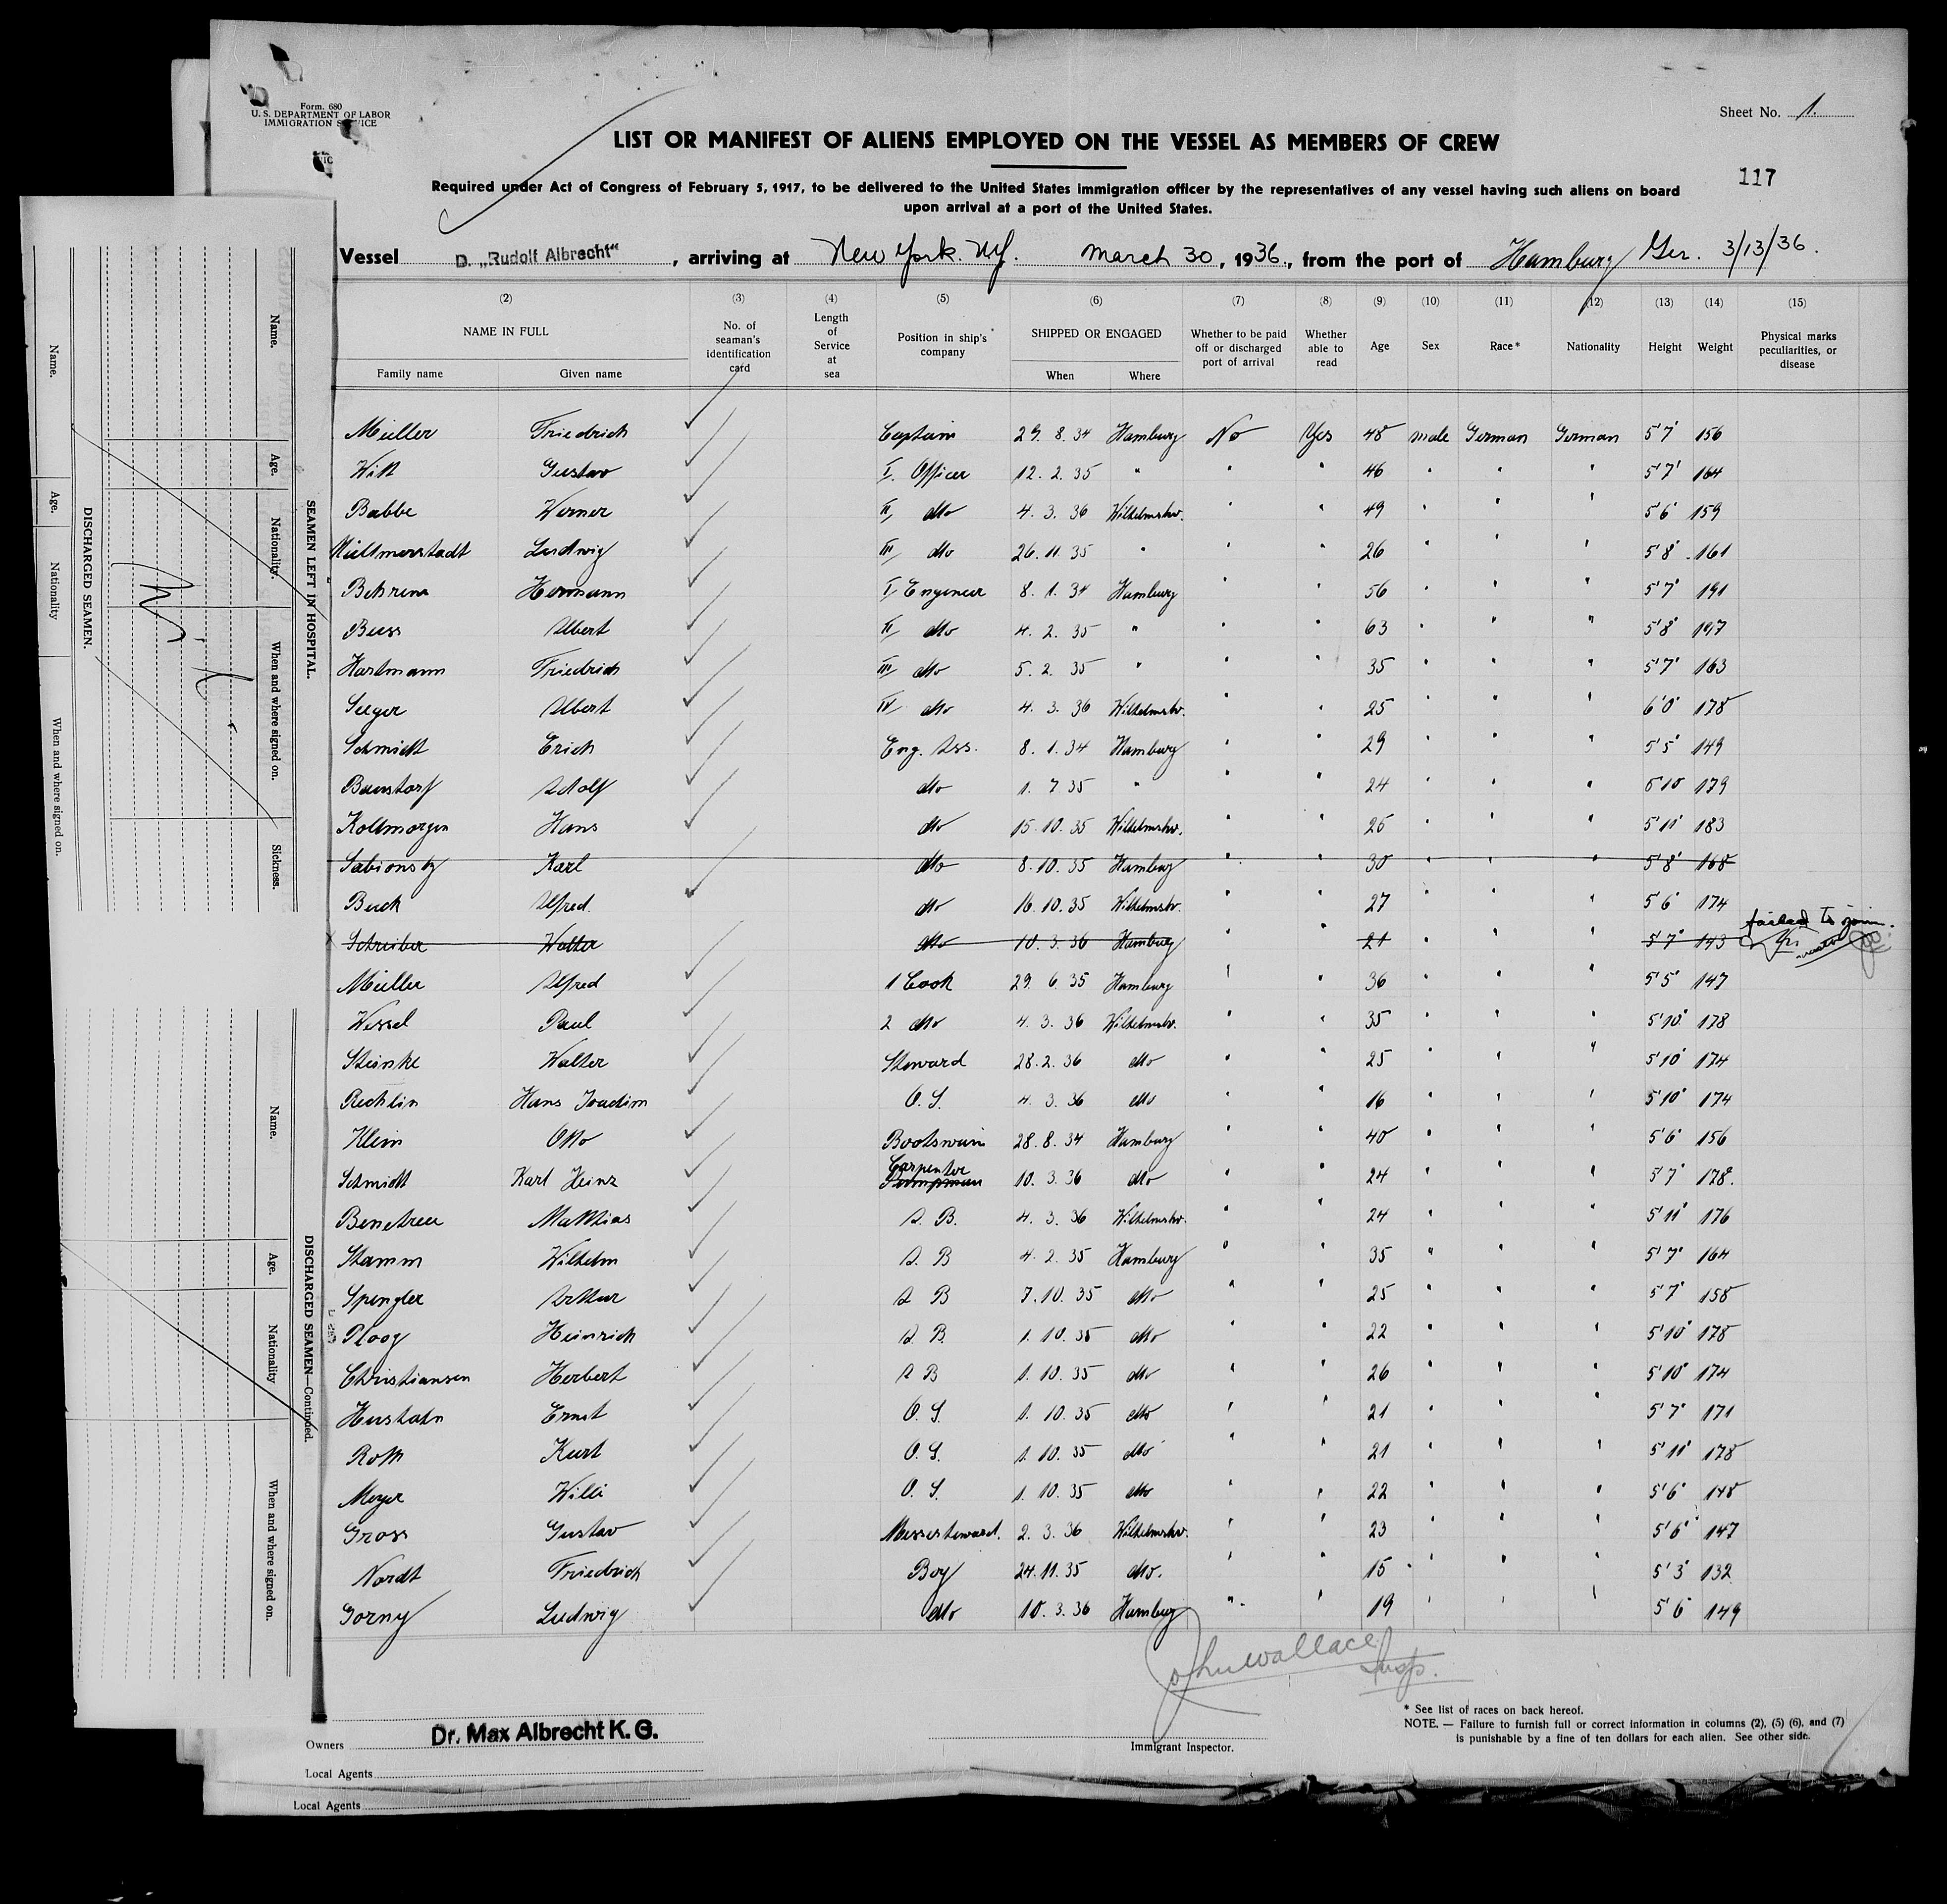 Form. 680
U. S. DEPARTMENT OF LABOR
IMMIGRATION SERVICE
Sheet No. 1.
LIST OR MANIFEST OF ALIENS EMPLOYED ON THE VESSEL AS MEMBERS OF CREW
117
Required under Act of Congress of February 5, 1917, to be delivered to the United States immigration officer by the representatives of any vessel having such aliens on board
upon arrival at a port of the United States.
Vessel D. „Rudolf Albrecht“, arriving at New York. NY. March 30, 1936, from the port of Hamburg Ger. 3/13/36.
(2) (3) (4) (5) (6) (7) (8) (9) (10) (11) (12) (13) (14) (15)
NAME IN FULL No. of seaman's identification card Length of Service at sea Position in ship's company SHIPPED OR ENGAGED Whether to be paid off or discharged port of arrival Whether able to read Age Sex Race* Nationality Height Weight Physical marks peculiarities, or disease
Family name Given name When Where
Müller Friedrich Captain 29. 8. 34 Hamburg No Yes 48 male German German 5'7" 156
Witt Gustav I. Officer 12. 2. 35 " " " 46 " " " 5'7" 164
Babbe Werner II, dto 4. 3. 36 Wilhelmshv. " " 49 " " " 5'6" 159
Ludwig III, dto 26. 11. 35 " " " 26 " " " 5'8" 161
Behrens Hermann I, Engineer 8. 1. 34 Hamburg " " 56 " " " 5'7" 191
Buss Albert II, dto 4. 2. 35 " " " 63 " " " 5'8" 197
Hartmann Friedrich III, dto 5. 2. 35 " " " 35 " " " 5'7" 163
Seeger Albert IV, dto 4. 3. 36 Wilhelmshv. " " 25 " " " 6'0" 178
Schmidt Erich Eng. Ass. 8. 1. 34 Hamburg " " 29 " " " 5'5" 149
Baustorf Adolf dto 1. 7 35 " " " 24 " " " 179
Kollmorgen Hans dto 15. 10. 35 Wilhelmshv. " " 25 " " " 5'11" 183
Karl dto 8. 10. 35 Hamburg " " 30 " " " 5'8" 168
Buck Alfred. dto 16. 10. 35 Wilhelmshv. " " 27 " " " 5'6" 174
Schreiber Walter dto 10. 3. 36 Hamburg " " 21 " " " 5'7" 143 failed to join.
Müller Alfred 1 Cook 29. 6. 35 Hamburg " " 36 " " " 5'5" 147
Wessel Paul 2 dto 4. 3. 36 Wilhelmshv. " " 35 " " " 5'10" 178
Steinke Walter Steward 28. 2. 36 dto " " 25 " " " 5'10" 174
Rechlin Hans Joachim O. S. 4. 3. 36 dto " " 16 " " " 5'10" 174
Klein Otto Bootswain 28. 8. 34 Hamburg " " 40 " " " 5'6" 156
Schmidt Karl Heinz Carpenter Pumpman 10. 3. 36 dto " " 24 " " " 5'7" 178.
Matthias A. B. 4. 3. 36 Wilhelmshv. " " 24 " " " 5'11" 176
Stamm Wilhelm A. B 4. 2. 35 Hamburg " " 35 " " " 5'7" 164
Spengler Arthur A B 7. 10. 35 dto " " 25 " " " 5'7" 158
Ploog Heinrich A. B. 1. 10. 35 dto " " 22 " " " 5'10" 178
Christiansen Herbert A B 1. 10. 35 dto " " 26 " " " 5'10" 174
Ernst O. S. 1. 10. 35 dto " " 21 " " " 5'7" 171
Roth Kurt O. S. 1. 10. 35 dto " " 21 " " " 5'11" 178
Meyer Willi O. S. 1. 10. 35 dto " " 22 " " " 5'6" 148
Gross Gustav Messesteward. 2. 3. 36 Wilhelmshv. " " 23 " " " 5'6" 147
Nordt Friedrich Boy 24. 11. 35 dto. " " 15 " " " 5'3" 132
Gorny Ludwig dto 10. 3. 36 Hamburg " " 19 " " " 5'6" 149
John Wallace
Insp.
* See list of races on back hereof.
NOTE. — Failure to furnish full or correct information in columns (2), (5) (6), and (7)
is punishable by a fine of ten dollars for each alien. See other side.
Owners Dr. Max Albrecht K. G.
Immigrant Inspector.
Local Agents
Local Agents
SEAMEN LEFT IN HOSPITAL.
Name. Age. Nationality. When and where signed on. Sickness.
DISCHARGED SEAMEN.
Name. Age. Nationality When and where signed on.
DISCHARGED SEAMEN—Continued.
Name. Age. Nationality When and where signed on.